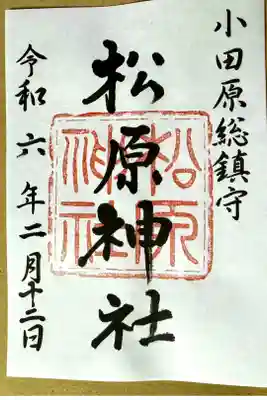 小田原総鎮守
松原神社
松原
神社
令和六年二月十二日